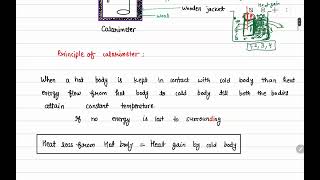 Heat gain
Wooden jacket
wool
1, 2, 3, 4
Calorimeter
Principle of calorimeter :
When a hot body is kept in contact with cold body than heat
energy flow from hot body to cold body till both the bodies
attain constant temperature
If no energy is lost to surrounding
Heat loss from Hot body = Heat gain by cold body